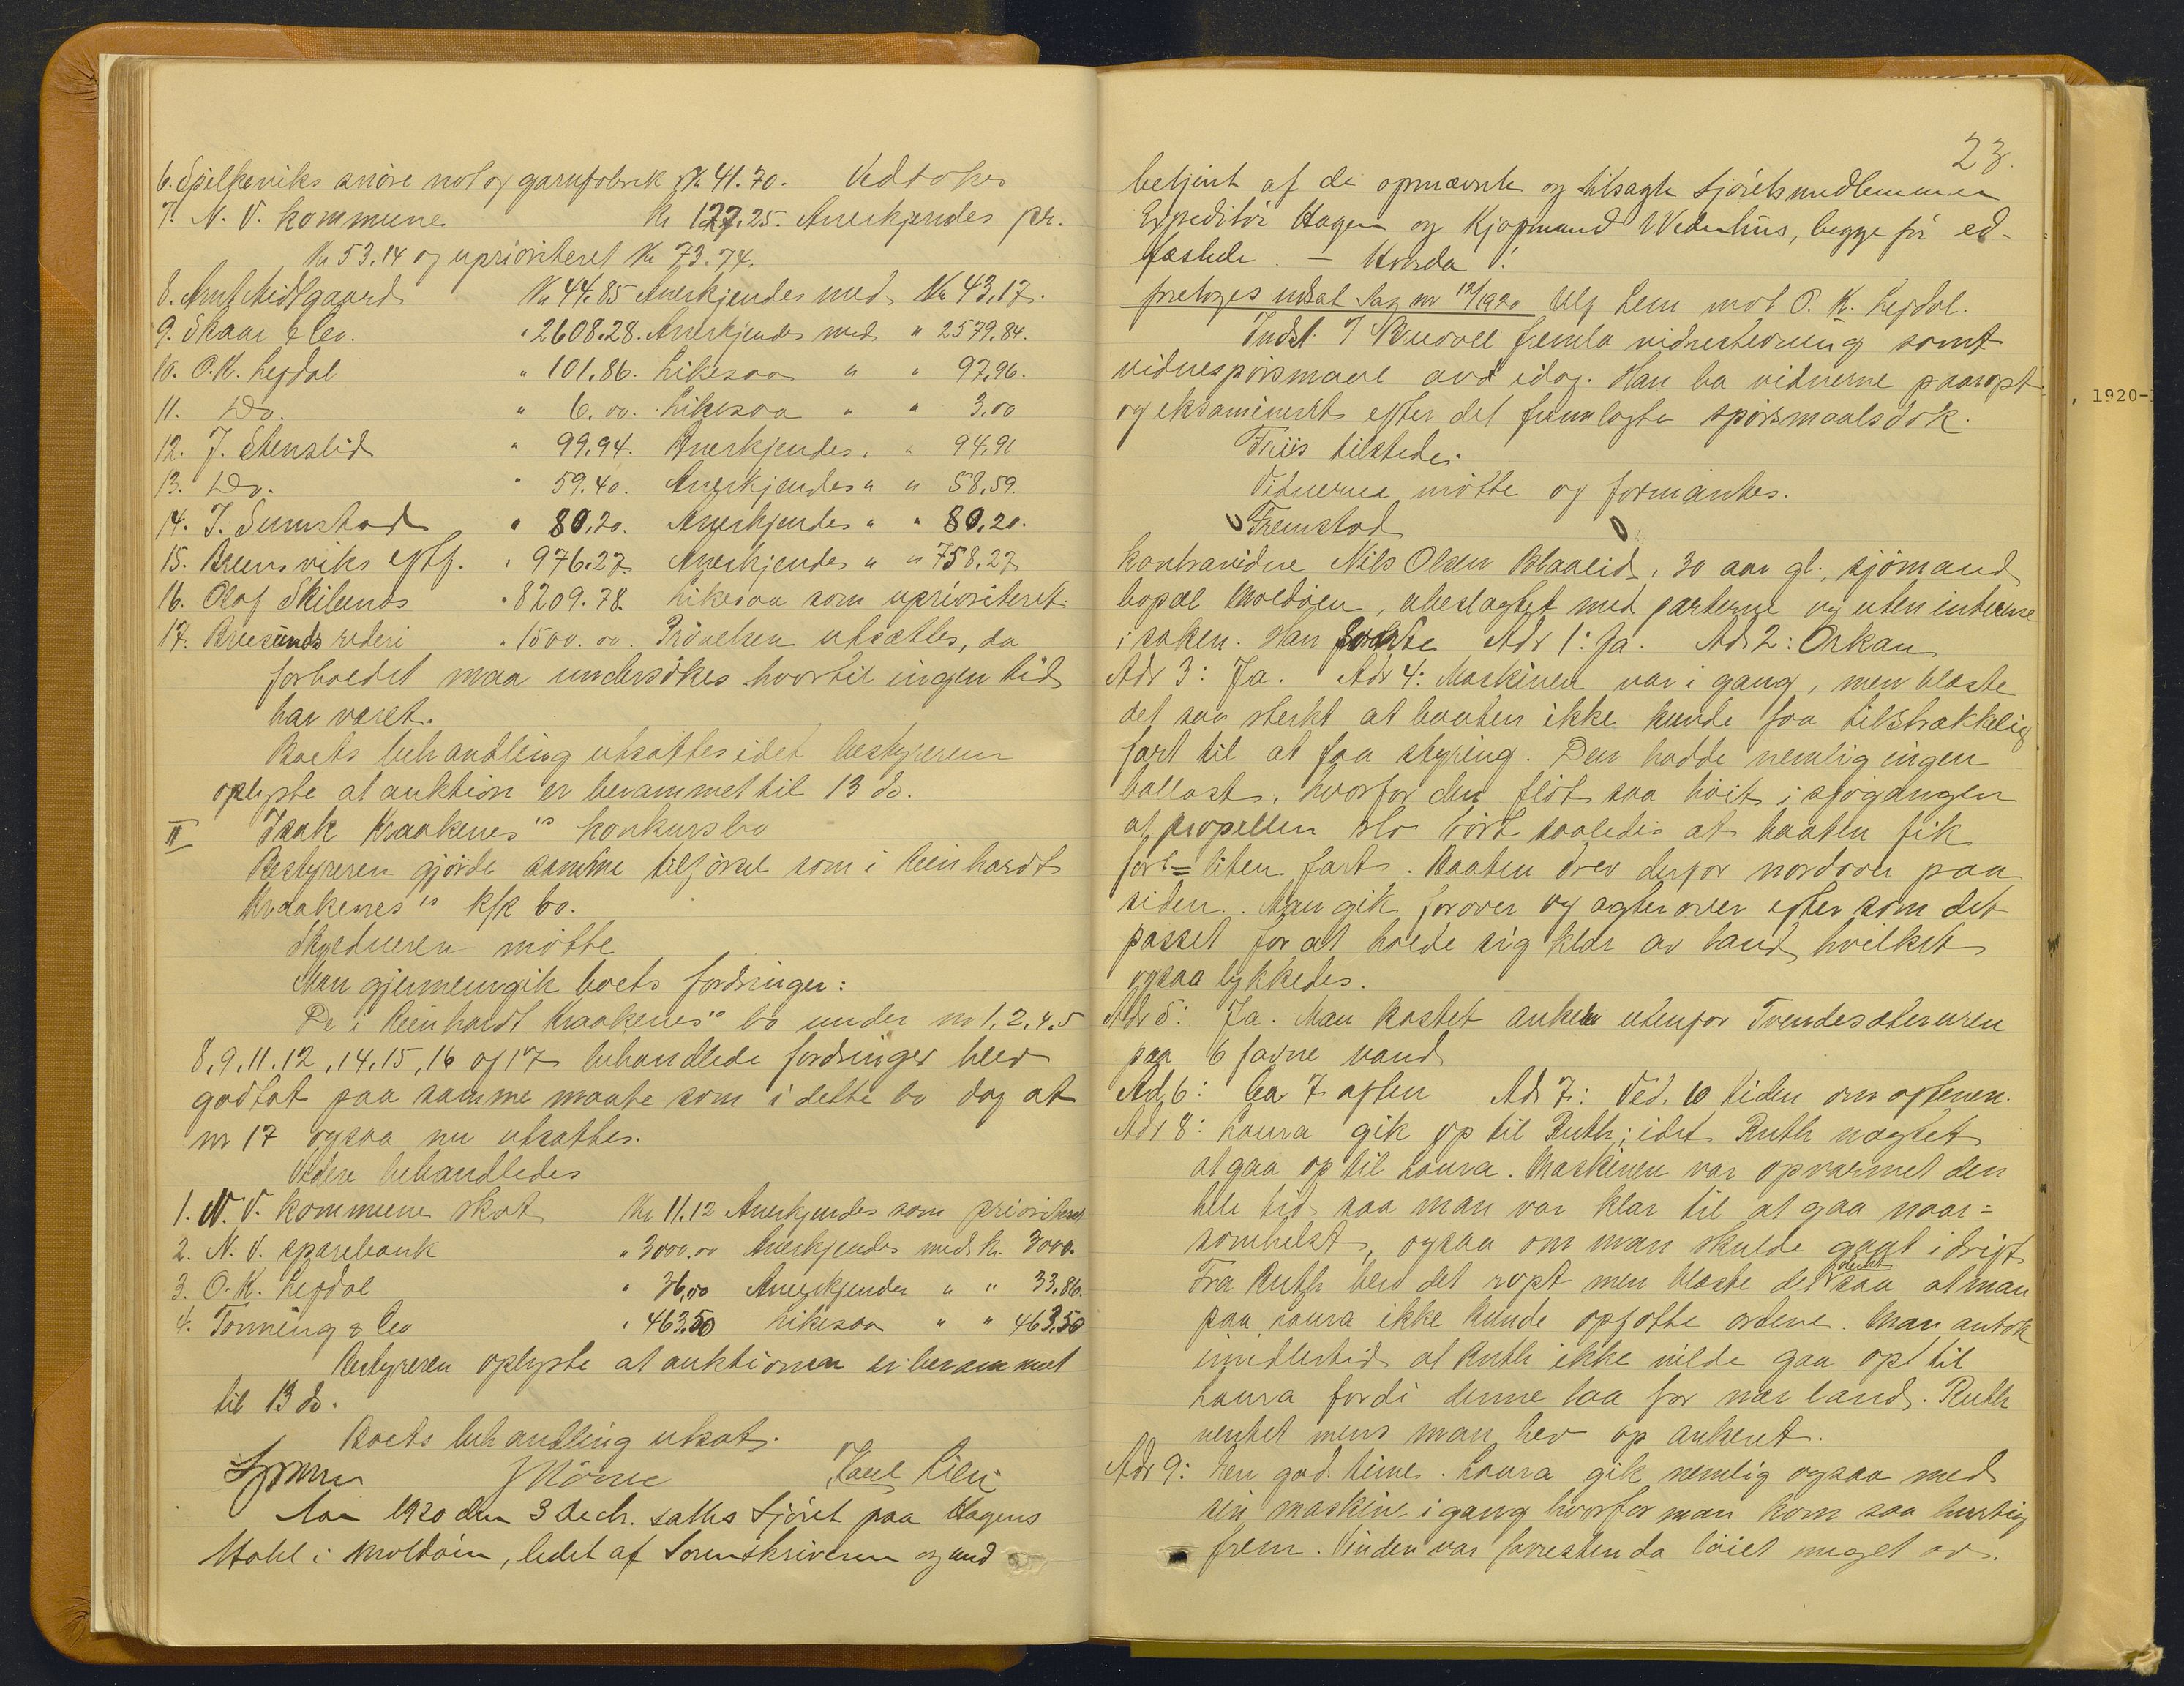 6. Spilkeviks snöre not og garnfabrik, Kr 41.70. Vedtokes
7. N. V. kommune Kr 127,25. Anerkjendes pr.
Kr 53.14 og uprioriteret Kr 73.74.
8. Arnt Midtgaard Kr 44.85 Anerkjendes med Kr 43,17.
9. Skaar & Co. " 2608.28. Anerkjendes med " 2579.84.
10. O.K. Lefdal " 101.86. Likesaa " " 97,96.
11. Do. " 6.00. Likesaa " " 3.00
12. J. Stenslid " 99,94. Anerkjendes " " 94,91
13. Do. " 59.40. Anerkjendes " " 58,59.
14. J. Sunnstad " 80,20. Anerkjendes " " 80,20.
15. Bruns viks eftf. " 976.27. Anerkjendes " " 758,27
16. Olaf Skibenes " 8209.78. Likesaa som uprioriteret.
17. Bruesunds rederi " 1500.00. Prövelsen utsættes, da
forholdet maa undersökes hvortil ingen tid
har været.
Boets behandling utsattes idet bestyreren
oplyste at auktion er berammet til 13 ds.
II Isak Kraakenes's konkursbo
Bestyreren gjorde samme tilförsel som i Reinhardt
Kraakenes's k/k bo.
Skyldneren mötte
Man gjennemgik boets fordringer:
De i Reinhardt Kraakenes's bo under nr 1,2,4,5
8,9,11.12,14.15,16 og 17 behandlede fordringer blev
godtat paa samme maate som i dette bo dog at
nr 17 ogsaa nu utsattes.
Videre behandledes
1. N. V. kommune skat Kr 11.12 Anerkjendes som prioriteret
2. N. V. sparebank " 3000.00 Anerkjendes med Kr. 3000.
3. O.K. Lefdal " 36,00 Anerkjendes " " 33.86.
4. Tonning & Co " 463.50 Likesaa " " 463,50
Bestyreren oplyste at auktionen er berammet
til 13 ds.
Boets behandling utsat.
Aar 1920 den 3 decbr. sattes Sjöret paa Hagens
Hotel i Moldöen, ledet af Sorenskriveren og med
23.
betjent af de opnævnte og tilsagte Sjöretsmedlemmer
Expeditör Hagen og Kjöpmand Wedenhus, begge för ed-
fæstede. – Hvorda !
foretoges utsat Sag nr 12/1920 Ulf Lem mot O. K. Lefdal.
Indst. T fremla vidnestevning samt
vidnespörsmaal avd idag. Han ba vidnerne paaropt
og eksamineret efter det fremlagte spörsmaalsdok.
Friis tilstede.
Vidnerne mötte og formantes.
Fremstod
kontravidne Nils Olsen Blaalid, 30 aar gl., sjömand
bopæl Moldöen, ubeslagtet med parterne og uten interesse
i saken. Han forklarte Adr 1: Ja. Adr 2: Orkan
Adr 3: Ja. Adr 4: Maskinen var i gang, men blaste
det saa sterkt at baaten ikke kunde faa tilstrækkelig
fart til at faa styring. Den hadde nemlig ingen
ballast, hvorfor den flöt saa höit i sjögangen
at propellen slo tört saaledes at baaten fik
for- liten fart. Baaten drev derfor nordover paa
siden. Man gik forover og agterover efter som det
passet for at holde sig klar av land, hvilket
ogsaa lykkedes.
Adr 5: Ja. Man kastet anker utenfor Trendesæterøren
paa 6 favne vand
Adr 6: Ca 7 aften Adr 7: Ved. 10 tiden om aftenen.
Adr 8: Laura gik op til Ruth; idet Ruth nægtet
at gaa op til Laura. Maskinen var opvarmet den
hele tid saa man var klar til at gaa naar-
somhelst, ogsaa om man skulde gaat i drift
Fra Ruth blev det ropt men blaste det sterkt saa at man
paa Laura ikke kunde opfatte ordene. Man antok
imidlertid at Ruth ikke vilde gaa op til
Laura fordi denne laa for nær land. Ruth
ventet mens man hev op ankeret.
Adr 9: En god time. Laura gik nemlig ogsaa med
sin maskine igang hvorfor man kom saa hurtig
frem. Vinden var forresten da löiet meget av.
, 1920-